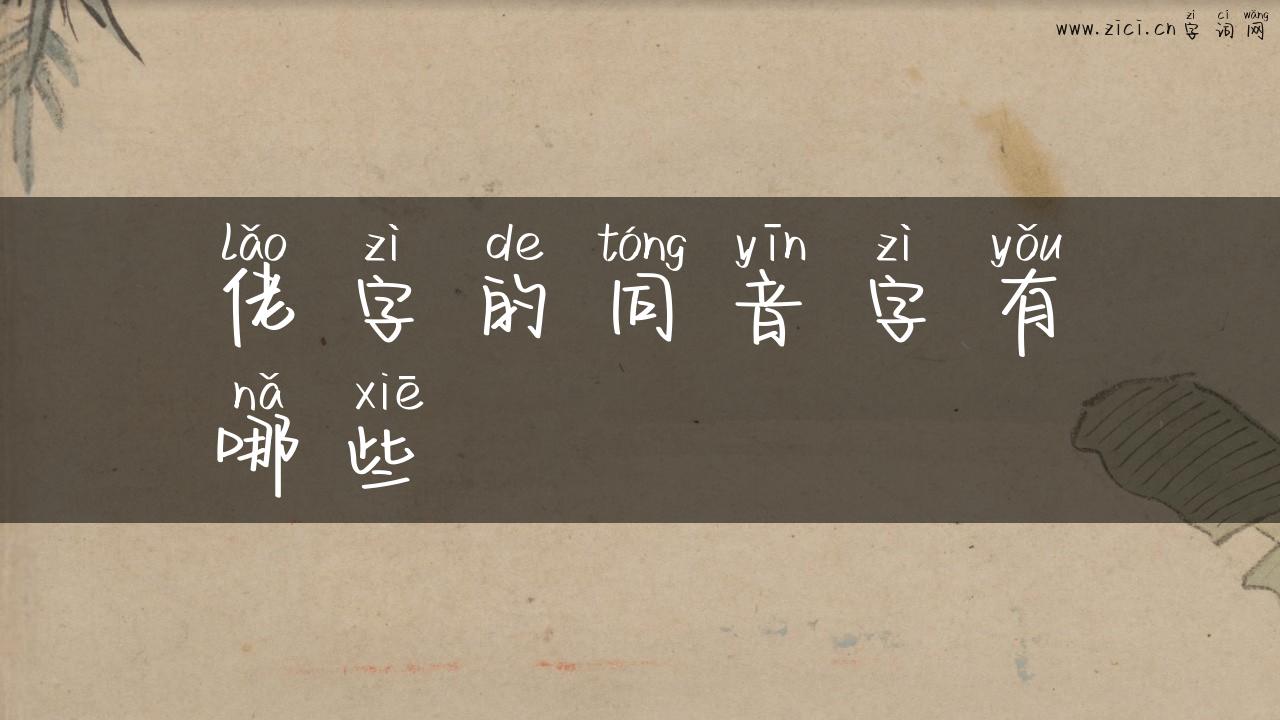 zì cí wǎng
www.zici.cn 字 词 网
lǎo zì de tóng yīn zì yǒu
佬 字 的 同 音 字 有
nǎ xiē
哪 些